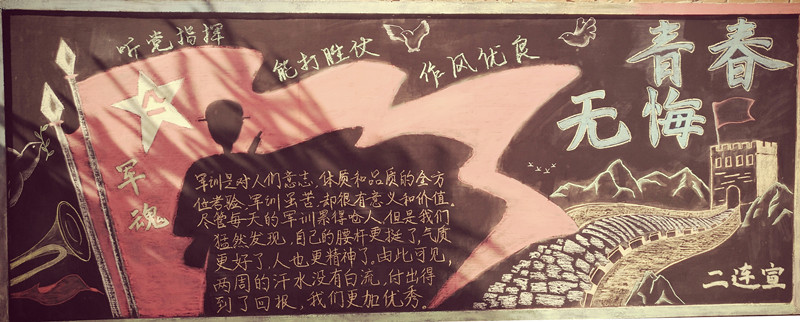 听党指挥
能打胜仗
作风优良
青春
无悔
军魂
军训是对人们意志、体质和品质的全方
位考验、军训虽苦、却很有意义和价值。
尽管每天的军训累得呛人,但是我们
猛然发现,自己的腰杆更挺了,气质
更好了,人也更精神了,由此可见,
两周的汗水没有白流,付出得
到了回报,我们更加优秀。
二连宣